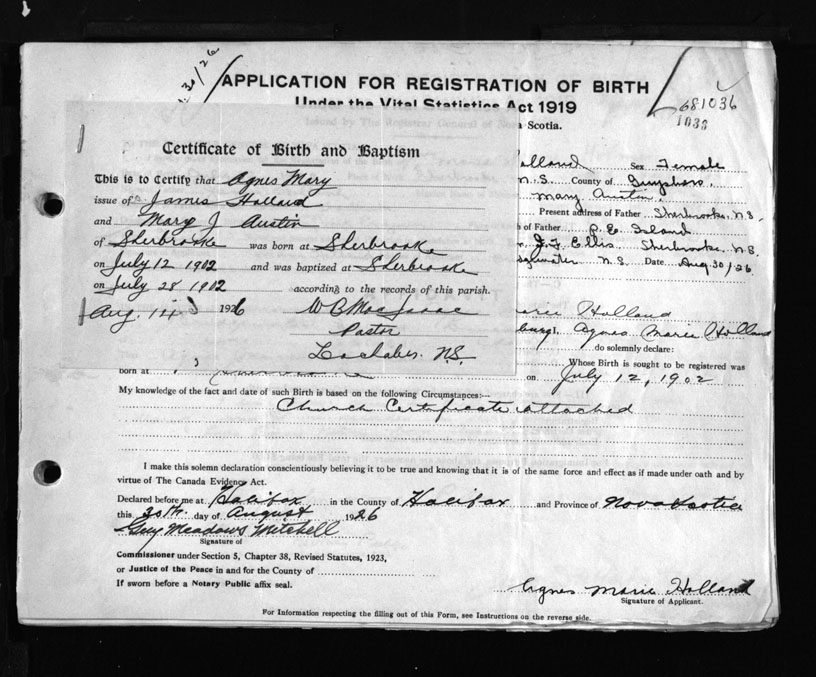 30/26
APPLICATION FOR REGISTRATION OF BIRTH
681036
1033
Under the Vital Statistics Act 1919
a Scotia.
Certificate of Birth and Baptism
This is to Certify that Agnes Mary
issue of James Holland
and Mary J Austin
of Sherbrooke was born at Sherbrooke
on July 12 1902 and was baptized at Sherbrooke
on July 28 1902 according to the records of this parish.
Aug. 14 1926 W B MacIsaac
Pastor
Lochaber. N.S.
olland Sex Female
N.S. County of Guysboro.
Mary Austin.
Present address of Father Sherbrooke N.S.
h of Father P. E. Island
J. F. Ellis. Sherbrooke. N.S.
N.S. Date Aug 30/26
arie Holland
burg. Agnes Marie Holland
do solemnly declare:
Whose Birth is sought to be registered was
born at on July 12, 1902
My knowledge of the fact and date of such Birth is based on the following Circumstances:--
Church Certificate attached
I make this solemn declaration conscientiously believing it to be true and knowing that it is of the same force and effect as if made under oath and by
virtue of The Canada Evidence Act.
Declared before me at Halifax in the County of Halifax and Province of Nova Scotia
this 30th day of August 1926
Guy Meadows Mitchell
Signature of
Commissioner under Section 5, Chapter 38, Revised Statutes, 1923,
or Justice of the Peace in and for the County of
If sworn before a Notary Public affix seal.
Agnes Marie Holland
Signature of Applicant.
For Information respecting the filling out of this Form, see Instructions on the reverse side.